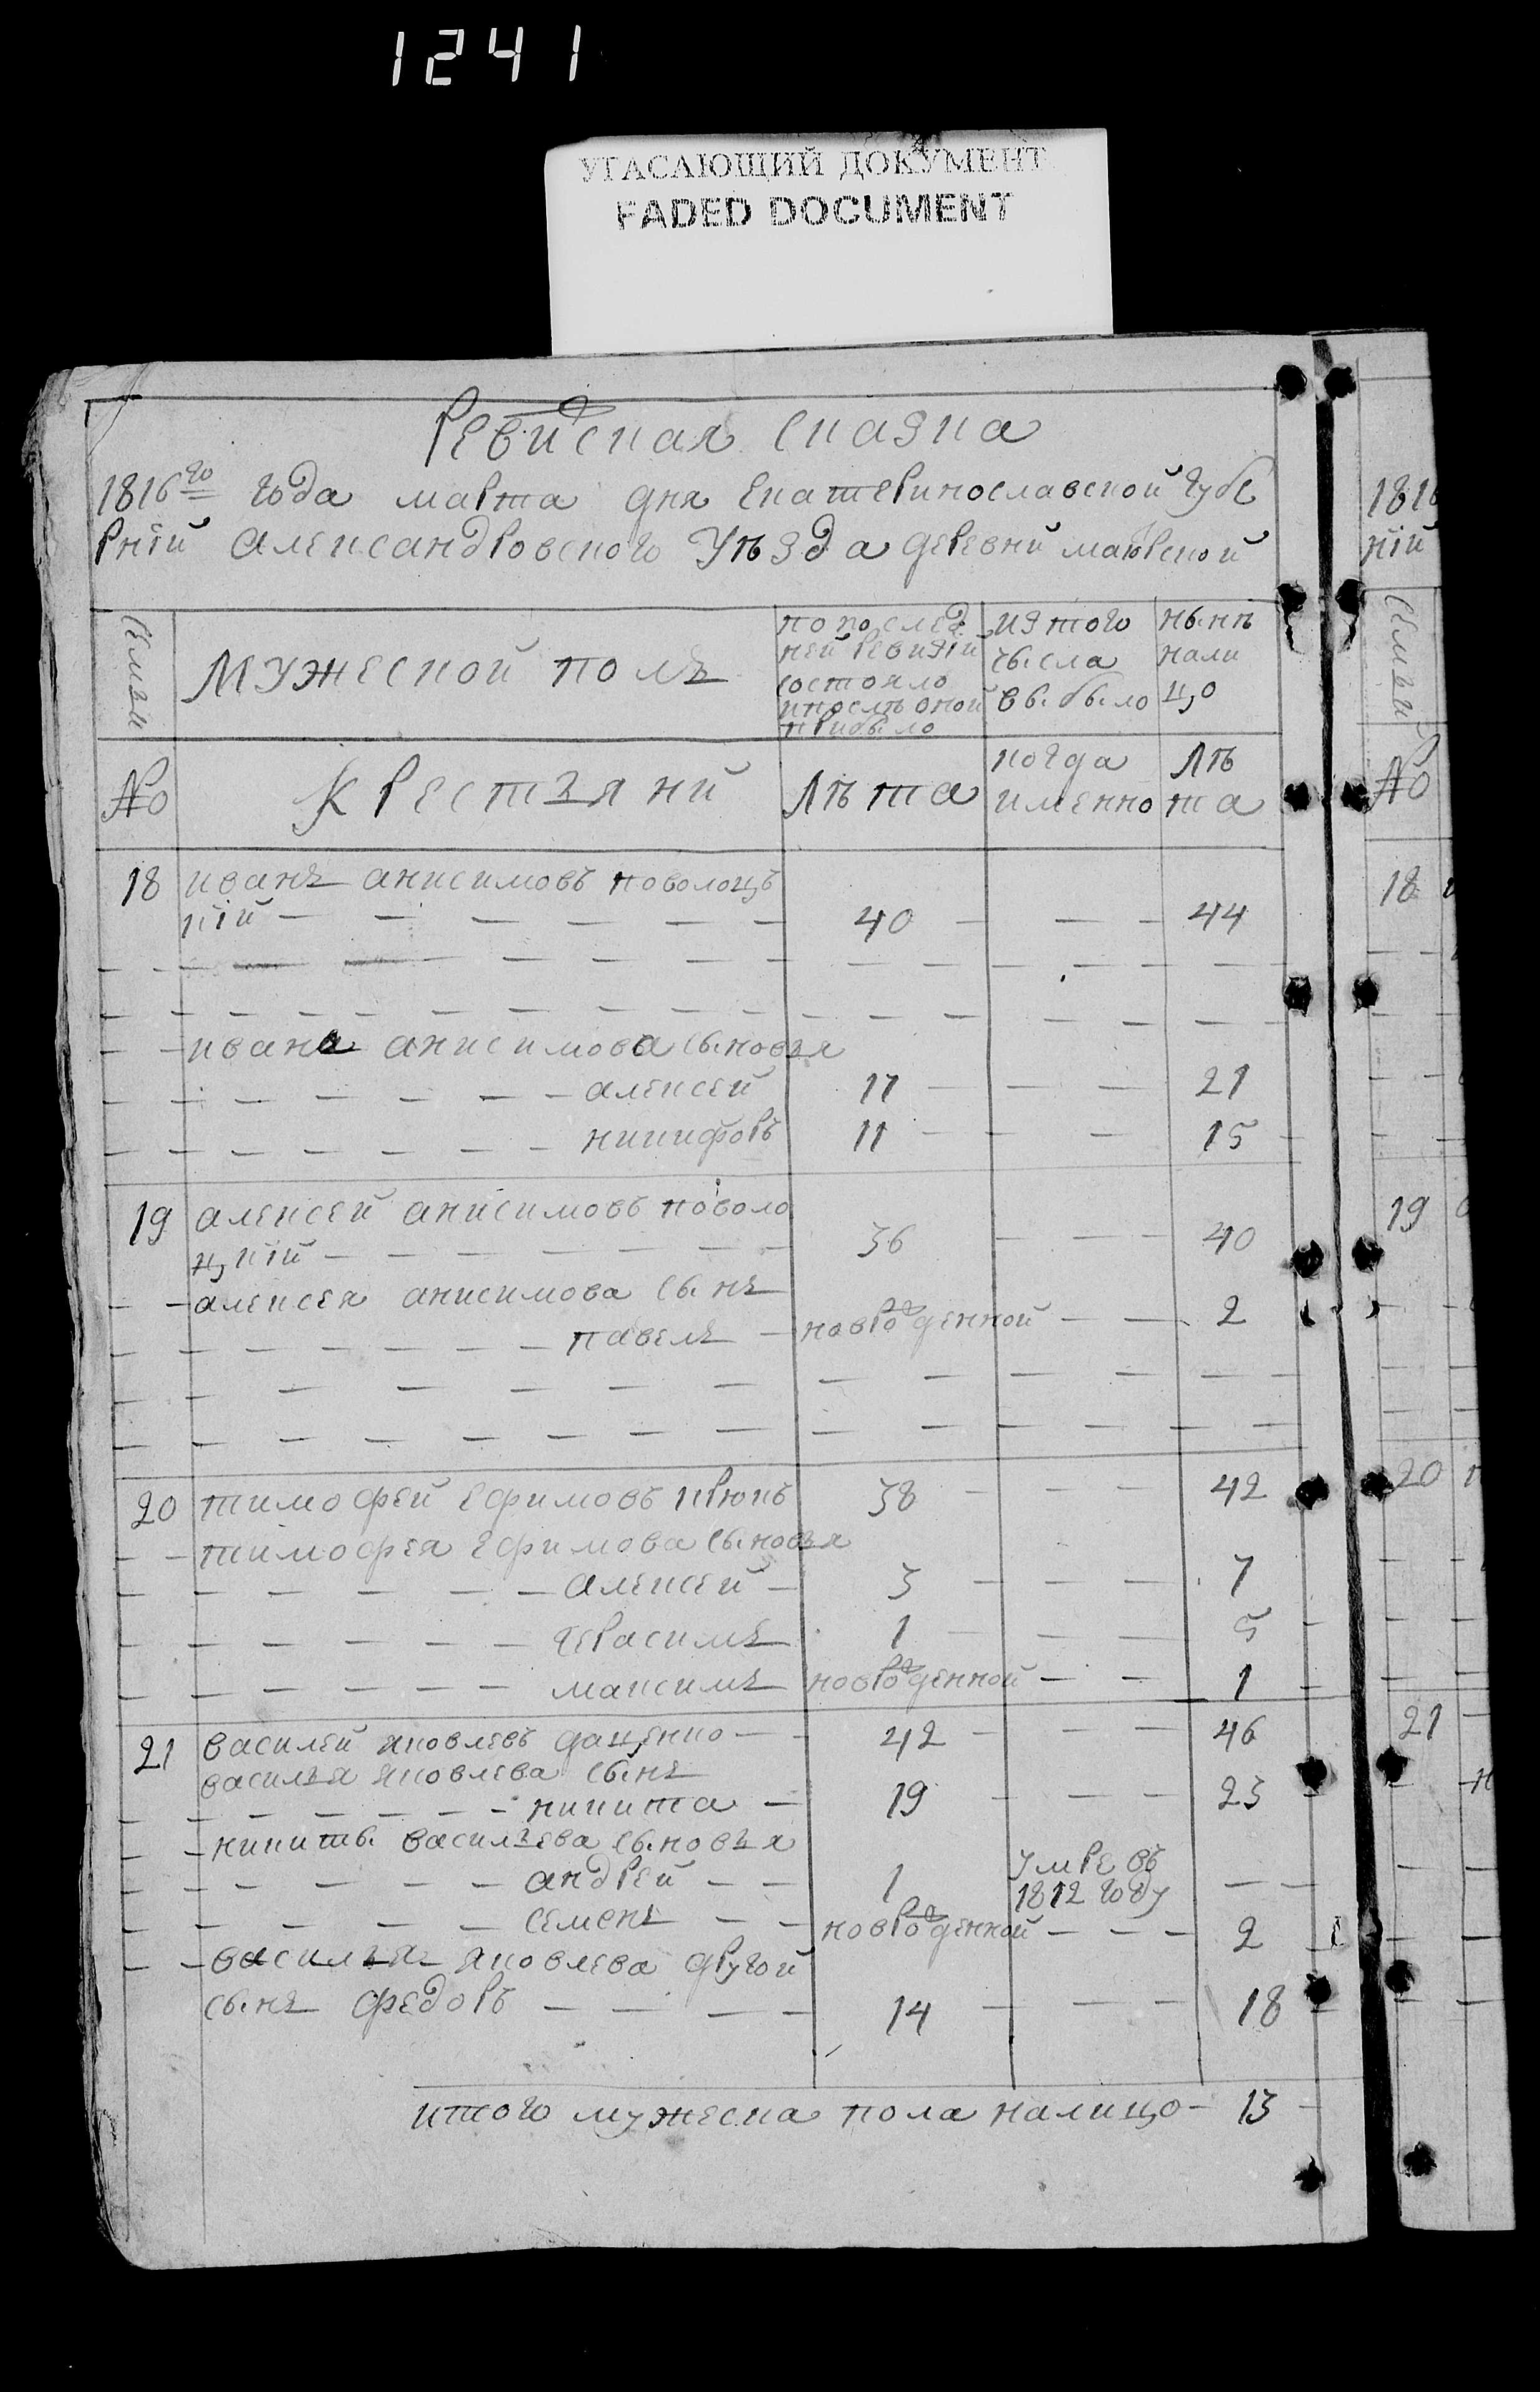 1241
УГАСАЮЩИЙ ДОКУМЕНТ
FADED DOCUMENT
Ревизская сказка
1816го года марта дня Екатеринославской губе
рнїи Александровского Уѣзда деревни маюрской
семьи
мужеской полъ
по послед
ней ревизїи
состояло
и послѣ оной
прибыло
из того
числа
выбыло
нынѣ
нали
цо
№
Крестьяни
Лѣта
когда
именно
Лѣ
та
18 иванъ анисимовъ поволоцъ
кїй — — — — — — 40 — — — 44
ивана анисимова сыновья
алексей 17 — — — 21
никифоръ 11 — — — 15
19 алексей анисимовъ поволо
цкїй — — — — — — 36 — — — 40
алексея анисимова сынъ
павелъ — новорожденной — — 2
20 тимофей ефимовъ крюкъ 38 — — — 42
тимофея ефимова сыновья
алексей — 3 — — — 7
герасимъ 1 — — — 5
максимъ новорожденной — — 1
21 василей яковлевъ даценко — 42 — — — 46
василья яковлева сынъ
никита — 19 — — — 23
никиты васильева сыновья
андрей — — 1 умре въ
1812 году — —
семенъ — — новорожденной — — — 2
василья яковлева другой
сынъ федоръ — — — — 14 — — — 18
итого мужеска пола налицо — 13
1816
нїй
семьи
№
18
19
20
21